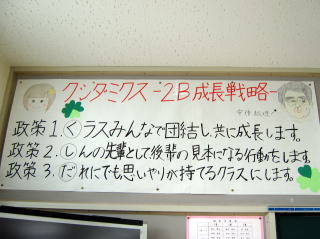 クシダミクス-2B成長戦略-
政策1.くラスみんなで団結し、共に成長します。
政策2.しんの先輩として後輩の見本になる行動をします。
政策3.だれにでも思いやりが持てるクラスにします。